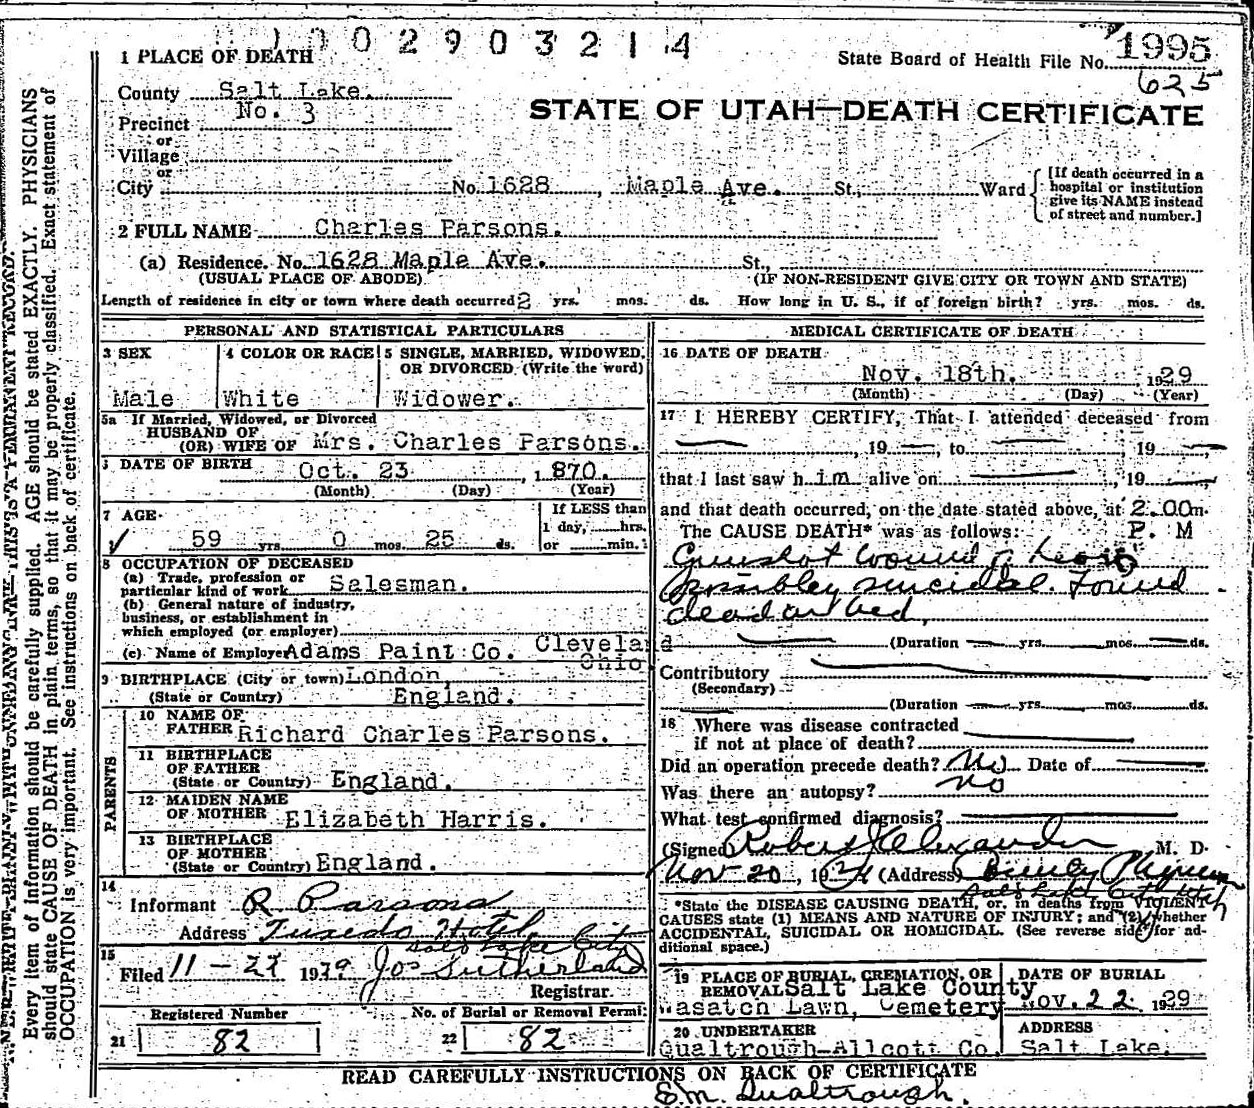 1002903214
1 PLACE OF DEATH
State Board of Health File No. 1995
625
County Salt Lake.
Precinct No. 3
or
Village
or
City No. 1628, Maple Ave. St., Ward
[If death occurred in a hospital or institution give its NAME instead of street and number.]
STATE OF UTAH—DEATH CERTIFICATE
2 FULL NAME Charles Parsons.
(a) Residence. No. 1628 Maple Ave. St.,
(USUAL PLACE OF ABODE) (IF NON-RESIDENT GIVE CITY OR TOWN AND STATE)
Length of residence in city or town where death occurred 2 yrs. mos. ds. How long in U. S., if of foreign birth? yrs. mos. ds.
PERSONAL AND STATISTICAL PARTICULARS
3 SEX
Male
4 COLOR OR RACE
White
5 SINGLE, MARRIED, WIDOWED, OR DIVORCED (Write the word)
Widower.
5a If Married, Widowed, or Divorced
HUSBAND OF
(OR) WIFE OF Mrs. Charles Parsons.
DATE OF BIRTH Oct. 23, 1870.
(Month) (Day) (Year)
7 AGE
59 yrs. 0 mos. 25 ds.
If LESS than
1 day, hrs.
or min.
8 OCCUPATION OF DECEASED
(a) Trade, profession or
particular kind of work Salesman.
(b) General nature of industry,
business, or establishment in
which employed (or employer)
(c) Name of Employer Adams Paint Co. Cleveland
Ohio.
9 BIRTHPLACE (City or town) London,
(State or Country) England.
PARENTS
10 NAME OF
FATHER Richard Charles Parsons.
11 BIRTHPLACE
OF FATHER
(State or Country) England.
12 MAIDEN NAME
OF MOTHER Elizabeth Harris.
13 BIRTHPLACE
OF MOTHER
(State or Country) England.
14
Informant R Parsons
Address Tuxedo Hotel
Salt Lake City
15
Filed 11-27 1929 Jos Sutherland
Registrar.
Registered Number
21 82
No. of Burial or Removal Permit
22 82
MEDICAL CERTIFICATE OF DEATH
16 DATE OF DEATH
Nov. 18th. 1929
(Month) (Day) (Year)
17 I HEREBY CERTIFY, That I attended deceased from
— , 19 — , to — 19 —
that I last saw him alive on — , 19 —
and that death occurred, on the date stated above, at 2.00 m.
The CAUSE DEATH* was as follows: P. M
Gunshot wound of
possibley suicidal. Found
dead in bed.
(Duration — yrs. — mos. — ds.
Contributory
(Secondary)
(Duration — yrs. — mos. — ds.
18 Where was disease contracted
if not at place of death?
Did an operation precede death? No Date of —
Was there an autopsy? no
What test confirmed diagnosis?
(Signed Robert Alexander M. D.
Nov 20, 19 (Address)
Salt Lake City Utah
*State the DISEASE CAUSING DEATH, or, in deaths from VIOLENT
CAUSES state (1) MEANS AND NATURE OF INJURY; and (2) whether
ACCIDENTAL, SUICIDAL OR HOMICIDAL. (See reverse side for additional space.)
19 PLACE OF BURIAL, CREMATION, OR
REMOVAL Salt Lake County
Wasatch Lawn, Cemetery
DATE OF BURIAL
Nov. 22 1929
20 UNDERTAKER
Qualtrough-Allcott Co.
ADDRESS
Salt Lake.
READ CAREFULLY INSTRUCTIONS ON BACK OF CERTIFICATE
E.M. Qualtrough.
Every item of information should be carefully supplied. AGE should be stated EXACTLY. PHYSICIANS
should state CAUSE OF DEATH in plain terms, so that it may be properly classified. Exact statement of
OCCUPATION is very important. See instructions on back of certificate.